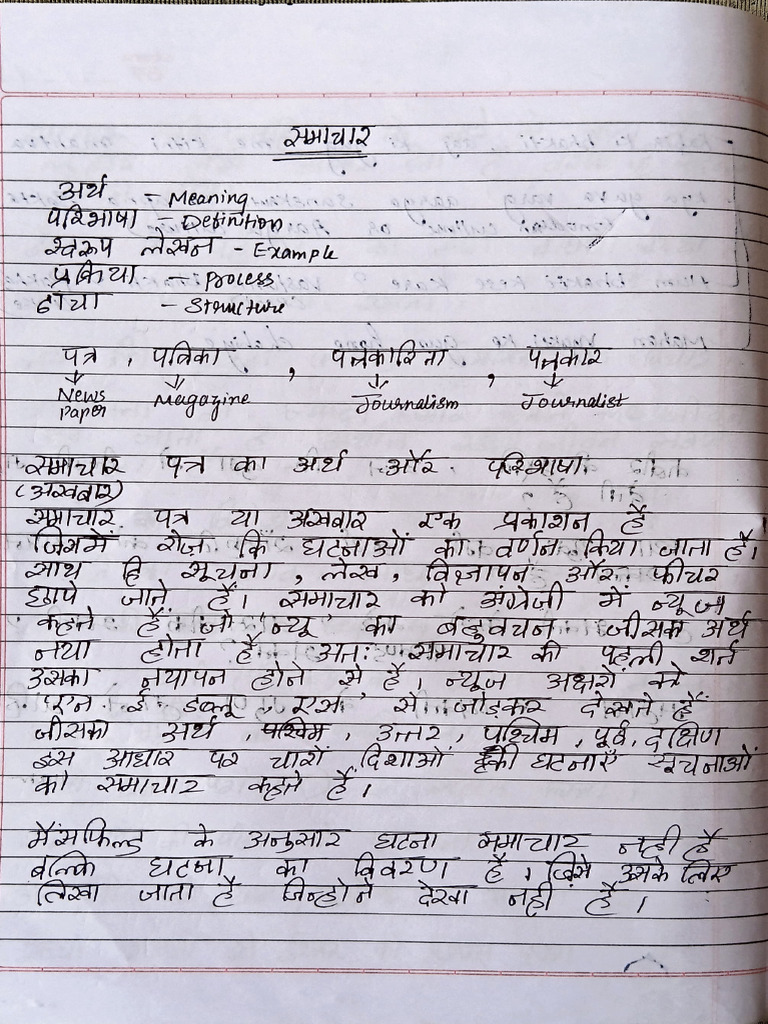 समाचार
अर्थ - Meaning
परिभाषा - Definition
स्वरूप लेखन - Example
प्रक्रिया - Process
ढांचा - Structure
पत्र , पत्रिका , पत्रकारिता , पत्रकार
News Paper Magazine Journalism Journalist
समाचार पत्र का अर्थ और परिभाषा
(अखबार)
समाचार पत्र या अखबार एक प्रकाशन है
जिसमें रोज़ कि घटनाओं का वर्णन किया जाता है।
साथ हि सूचना , लेख , विज्ञापन और फीचर
छापे जाते हैं। समाचार को अंग्रेजी में न्यूज
कहते हैं जो 'न्यू' का बहुवचन जीसके अर्थ
नया होता है अतः समाचार की पहली शर्त
उसका नयापन होने से है। न्यूज अक्षरों को
'एन ई डब्लू एस' से जोड़कर देखते हैं
जीसका अर्थ , उत्तर , पश्चिम , पूर्व , दक्षिण
इस आधार पर चारों दिशाओं की घटनाएँ सूचनाओं
को समाचार कहते हैं।
मैंसफिल्ड के अनुसार घटना समाचार नही है
बल्कि घटना का विवरण है। जिसे उसके लिए
लिखा जाता है जिन्होने देखा नही है।